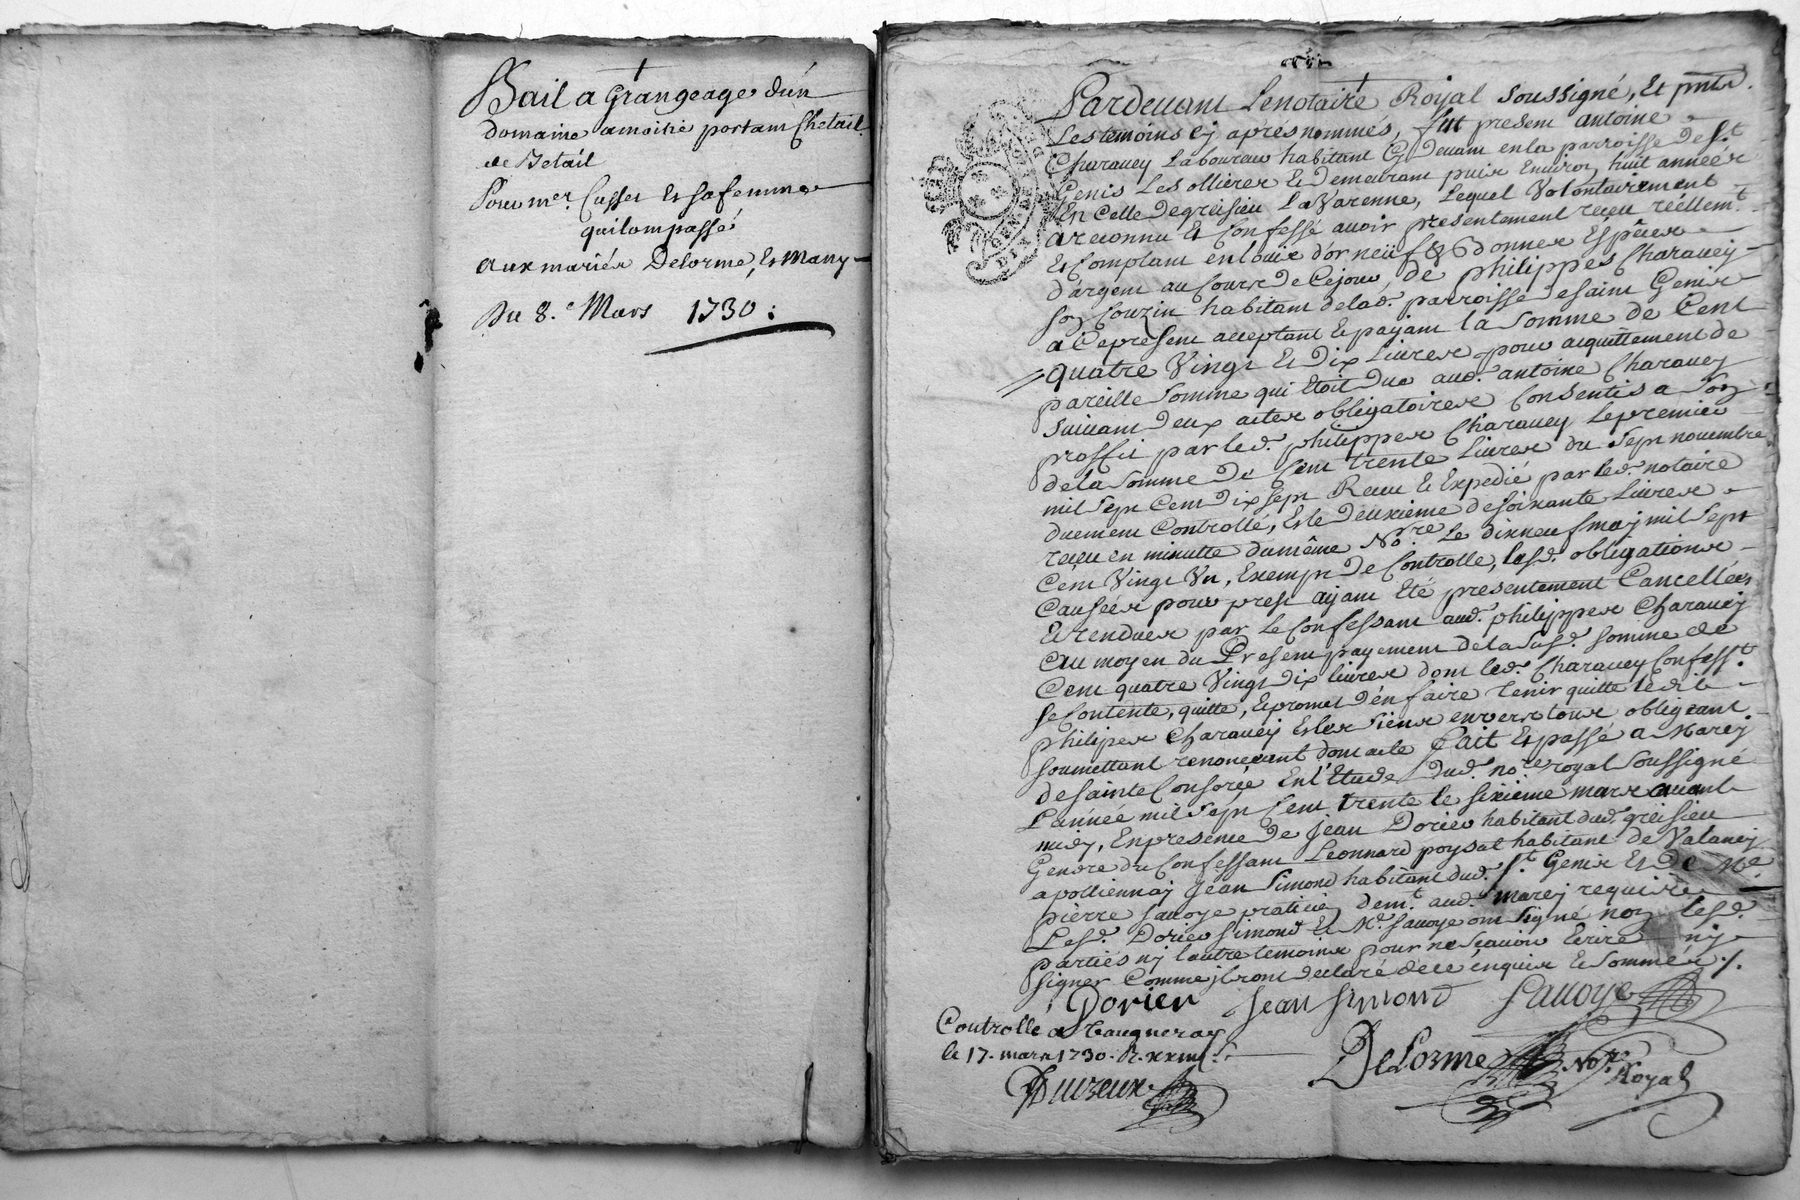 Bail a Grangeage d'ún
domaine amoitié portant Chetail
de Betáil
Pour mer. Cusset Et safemme
quilontpassé
Aux mariés Delorme, Et Many
Du 8.e Mars 1730:
Pardevant Lenotaire Royal soussigné, Et pnts
Lestemoins Cy aprésnommés, fut present antoine
Charavey Laboureur habitant Cy devant enla parroisse de St
Genis Lesollieres Et demeurant puis Environ huit années
En Celle degreisieu LaVarenne, Lequel Volontairement
areconnu Et Confessé avoir présentement reçeu réellemt
Et Comptant enlouis d'or neüf & donnes Espèces
d'árgent au Cours de Cejour, de philippes Charavey
son Couzin habitant delad. parroisse desaint Genis
a Cepresent acceptant Et payant la somme de Cent
quatre Vingt Et Dix Livres, pour acquittement de
pareille somme qui Etoit due aud. antoine Charavey
suivant deux actes obligatoires Consentis a son
proffit par led. philippes Charavey Lepremier
delasomme de Cent trente Livres du sept novembre
mil sept Cent dix sept Receu Et Expedié par led. notaire
duement Controllé, Et le deuxième desoixante Livres
receu en minutte dumême Nore Le dixneuf may mil sept
Cent Vingt Un, Exempt de Controlle, lesd. obligations
Causées pour prest aÿant Eté presentement Cancellées
Et rendues par Le Confessant aud. philippes Charavey
Au moyen du Present payement delasusd. somme de
Cent quatre Vingt Dix livres dont led. Charavey Confesst
se Contente, quitte, Et promet d'en faire tenir quitte ledit
philipes Charavey Et les siens envers tous obligeant
soumettant renonceant dont acte fait Et passé a Marcy
desainte Consorce En l'Etude dud. nore royal soussigné
L'année mil sept Cent trente le sixième mars avant
midy, Enpresence de Jean Dorier habitant dud. greisieu
Gendre du Confessant Leonnard poysat habitant de
apolliennay Jean Simond habitant dud. St Genis Et De Me
pierre savoye praticien demt aud. Marcy requis
Lesd. Dorier simond Et Me savoye ont signé non lesd.
parties ny l'autre temoins pour ne sçavoir Ecrire ny
signer Commejlsont declaré dece énquis Et sommés ./.
Dorier Jean simond Savoye
Controllé a Vaugneray
le 17. mars 1730. R.
DeLorme Nore Royal